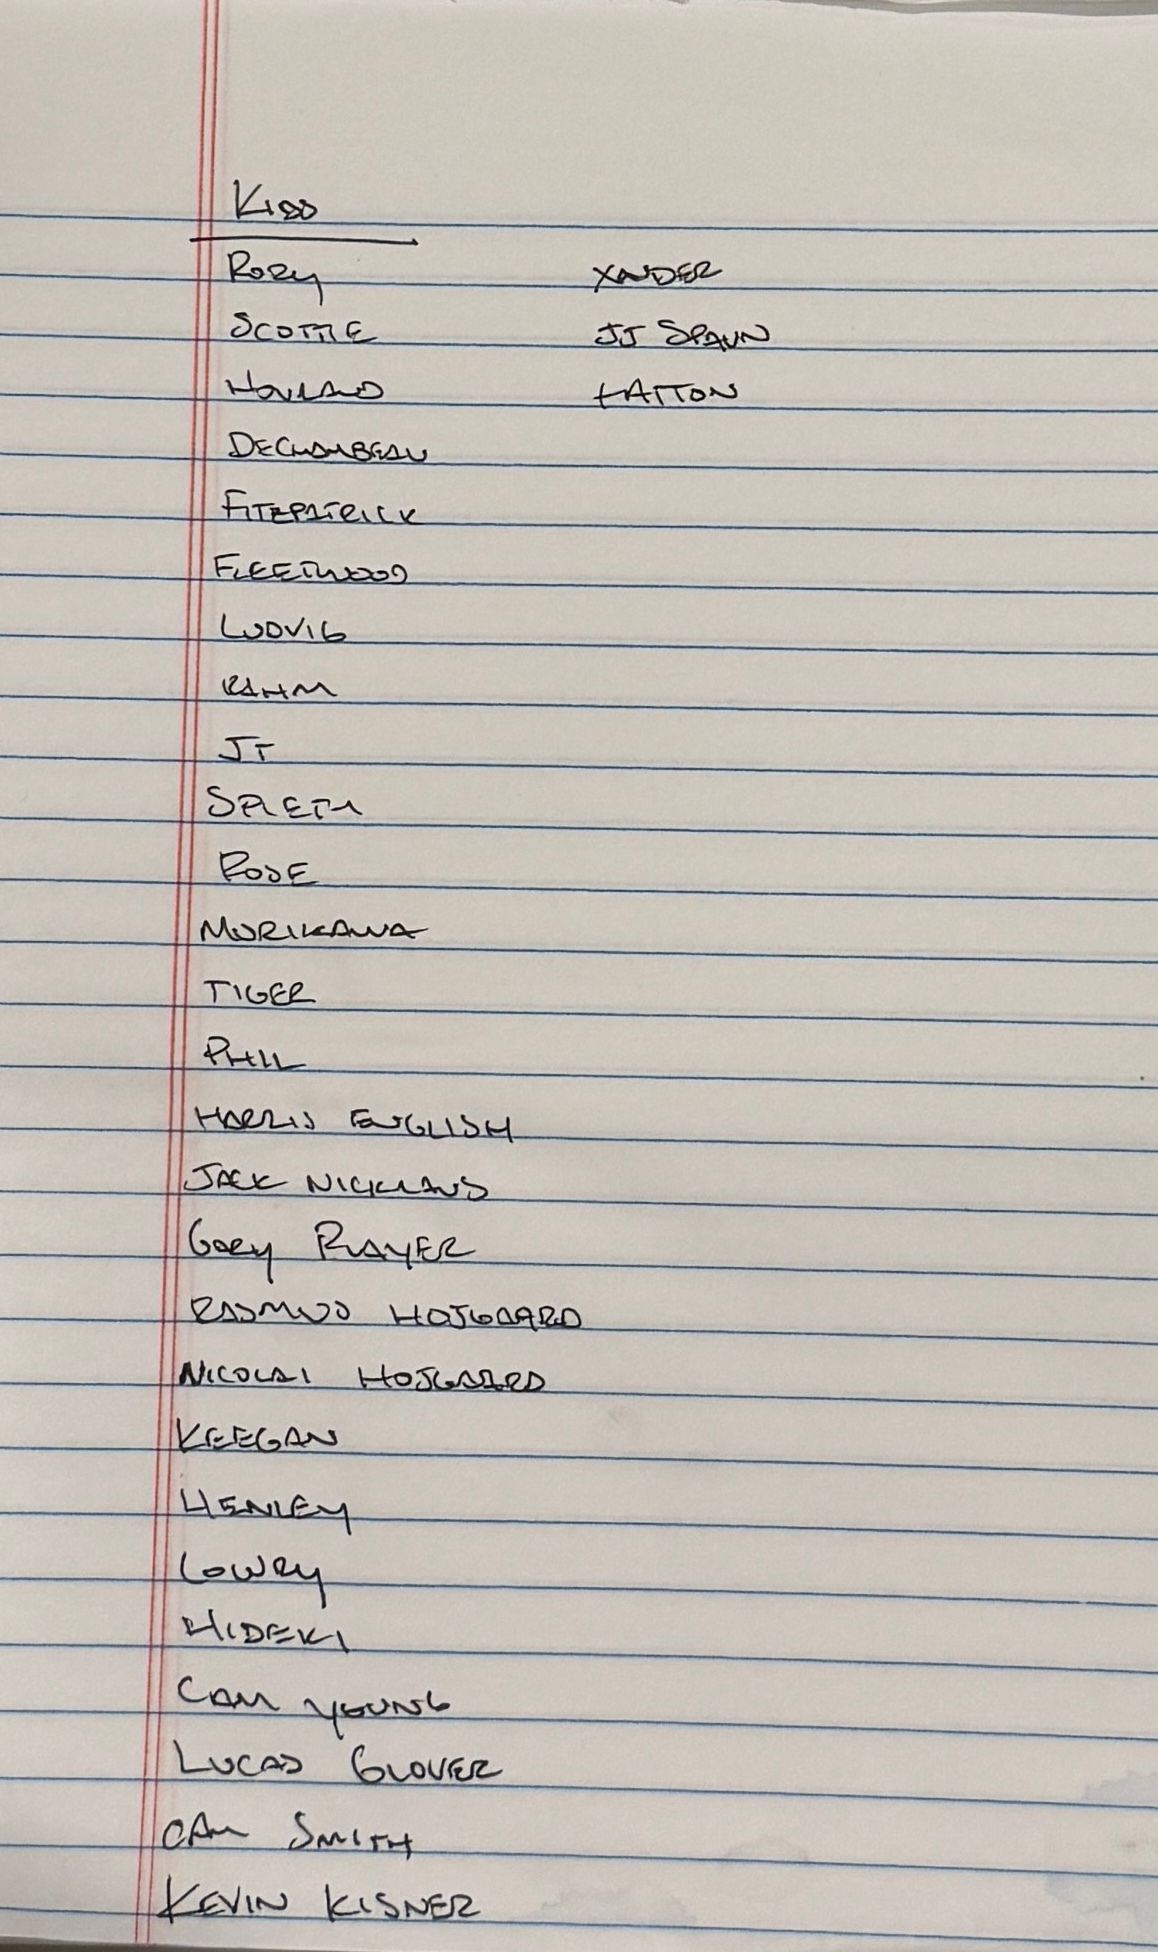 KISS
RORY
SCOTTIE
HOVLAND
DECHAMBEAU
FITZPATRICK
FLEETWOOD
LUDVIG
RAHM
JT
SPIETH
ROSE
MORIKAWA
TIGER
PHIL
HARRIS ENGLISH
JACK NICKLAUS
GARY PLAYER
RASMUS HOJGAARD
NICOLAI HOJGAARD
KEEGAN
HENLEY
LOWRY
HIDEKI
CAM YOUNG
LUCAS GLOVER
CAM SMITH
KEVIN KISNER
XNDER
JJ SPAUN
HATTON